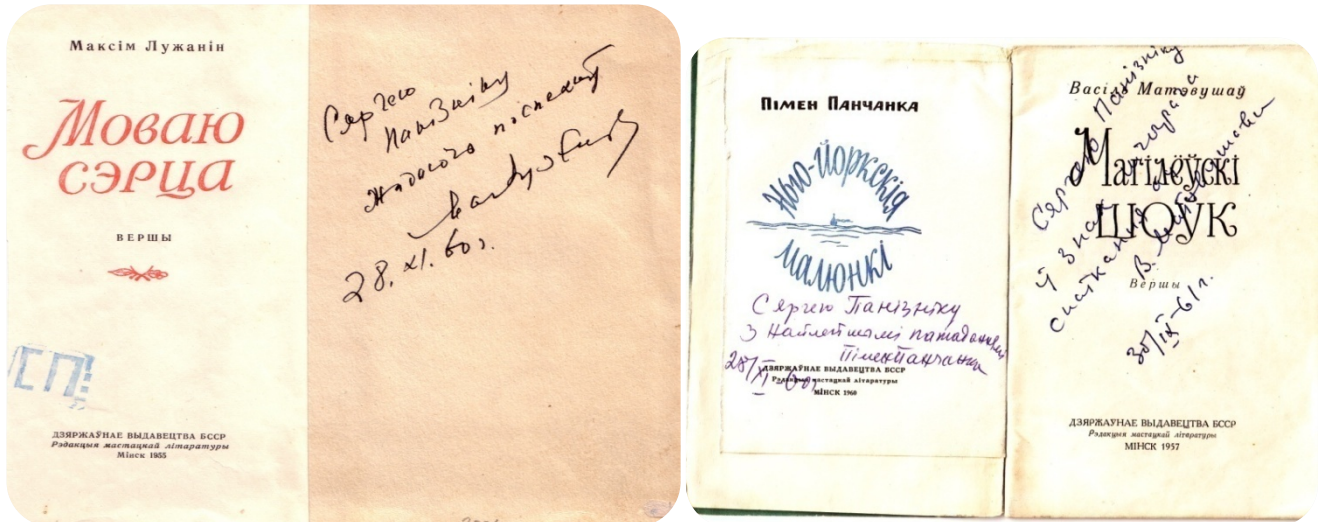 Максім Лужанін
Моваю
сэрца
ВЕРШЫ
ДЗЯРЖАЎНАЕ ВЫДАВЕЦТВА БССР
Рэдакцыя мастацкай літаратуры
Мінск 1955
Сяргею
Панізніку
жадаючы поспехаў
28.XI.60 г.
ПІМЕН ПАНЧАНКА
Нью-Йоркскія
малюнкі
Сяргею Панізніку
З найлепшымі пажаданнямі
Пімен Панчанка
28/XI-60 г.
ДЗЯРЖАЎНАЕ ВЫДАВЕЦТВА БССР
Рэдакцыя мастацкай літаратуры
МІНСК 1960
Васіль Матэвушаў
Магілёўскі
шоўк
Вершы
Сяргею Панізніку
ў знак
спаткання
В. Матэвушаў
30/IX-61 г.
ДЗЯРЖАЎНАЕ ВЫДАВЕЦТВА БССР
Рэдакцыя мастацкай літаратуры
МІНСК 1957